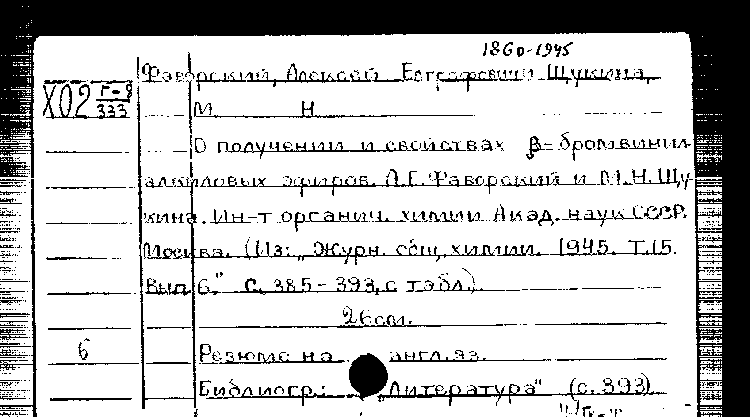 1860-1945
Фаворский, Алексей Евграфович и Щукина,
ХО2 Г-9/333
М Н
О получении и свойствах β-бромвинил-
алкиловых эфиров. А.Е. Фаворский и М.Н. Щу
кина. Ин-т органич. химии Акад. наук СССР.
Москва. (Из: „Журн. общ. химии. 1945. Т.15.
Вып 6." С. 385-393, с табл.).
26 см.
6 Резюме на англ. яз.
Библиогр.: „Литература" (с. 393)